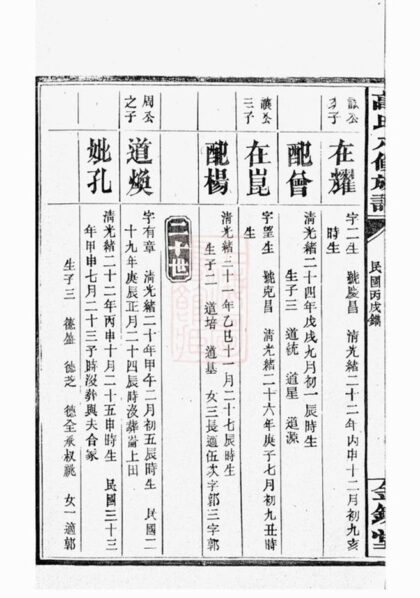 民國丙戌鐫
在耀
字二生 號慶昌 清光緒二十二年丙申十二月初九亥
時生
配曾
清光緒二十四年戊戌九月初一辰時生
生子三 道統 道星 道源
三子
在崑
字璽生 號克昌 清光緒二十六年庚子七月初九丑時
生
配楊
清光緒三十一年乙巳十一月二十七辰時生
生子二 道培 道基 女三長適伍次字郭三字郭
二十世
周公
之子
道煥
字有章 清光緒二十年甲午二月初五辰時生 民國二
十九年庚辰正月二十四辰時沒葬論上田
妣孔
清光緒二十二年丙申十月二十五申時生 民國三十三
年甲申七月二十三子時沒葬與夫合冢
生子三 德盛 德芝 德全承叔祧 女一適郭